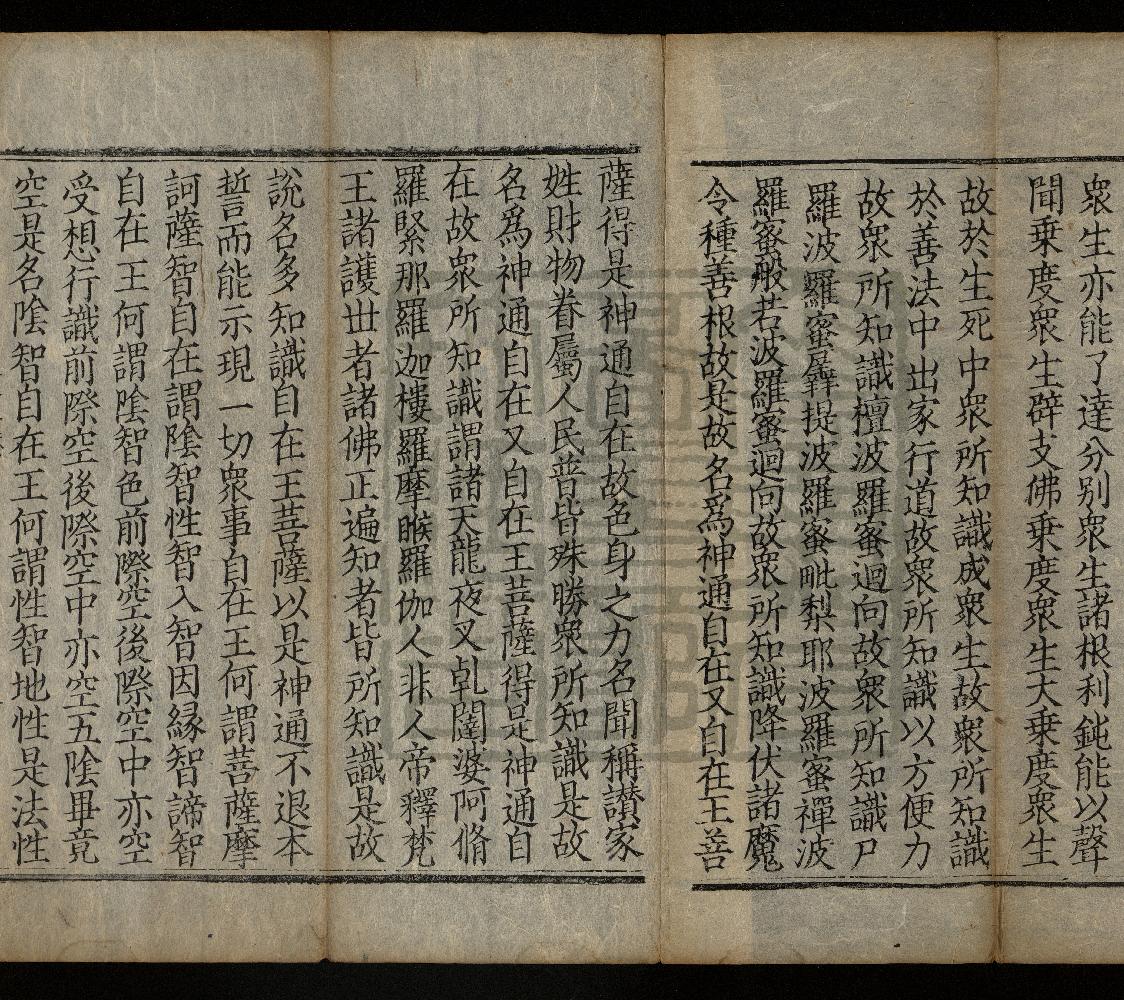 衆生亦能了達分别衆生諸根利鈍能以聲
聞乗度衆生辟支佛乗度衆生大乗度衆生
故於生死中衆所知識成衆生故衆所知識
於善法中出家行道故衆所知識以方便力
故衆所知識檀波羅蜜迴向故衆所知識尸
羅波羅蜜羼提波羅蜜毗梨耶波羅蜜禪波
羅蜜般若波羅蜜迴向故衆所知識降伏諸魔
令種善根故是故名爲神通自在又自在王菩
薩得是神通自在故色身之力名聞稱讃家
姓財物眷屬人民普皆殊勝衆所知識是故
名爲神通自在又自在王菩薩得是神通自
在故衆所知識謂諸天龍夜叉乹闥婆阿脩
羅緊那羅迦樓羅摩睺羅伽人非人帝釋梵
王諸護丗者諸佛正遍知者皆所知識是故
説名多知識自在王菩薩以是神通不退本
誓而能示現一切衆事自在王何謂菩薩摩
訶薩智自在謂隂智性智入智因縁智諦智
自在王何謂隂智色前際空後際空中亦空
受想行識前際空後際空中亦空五隂畢竟
空是名隂智自在王何謂性智地性是法性